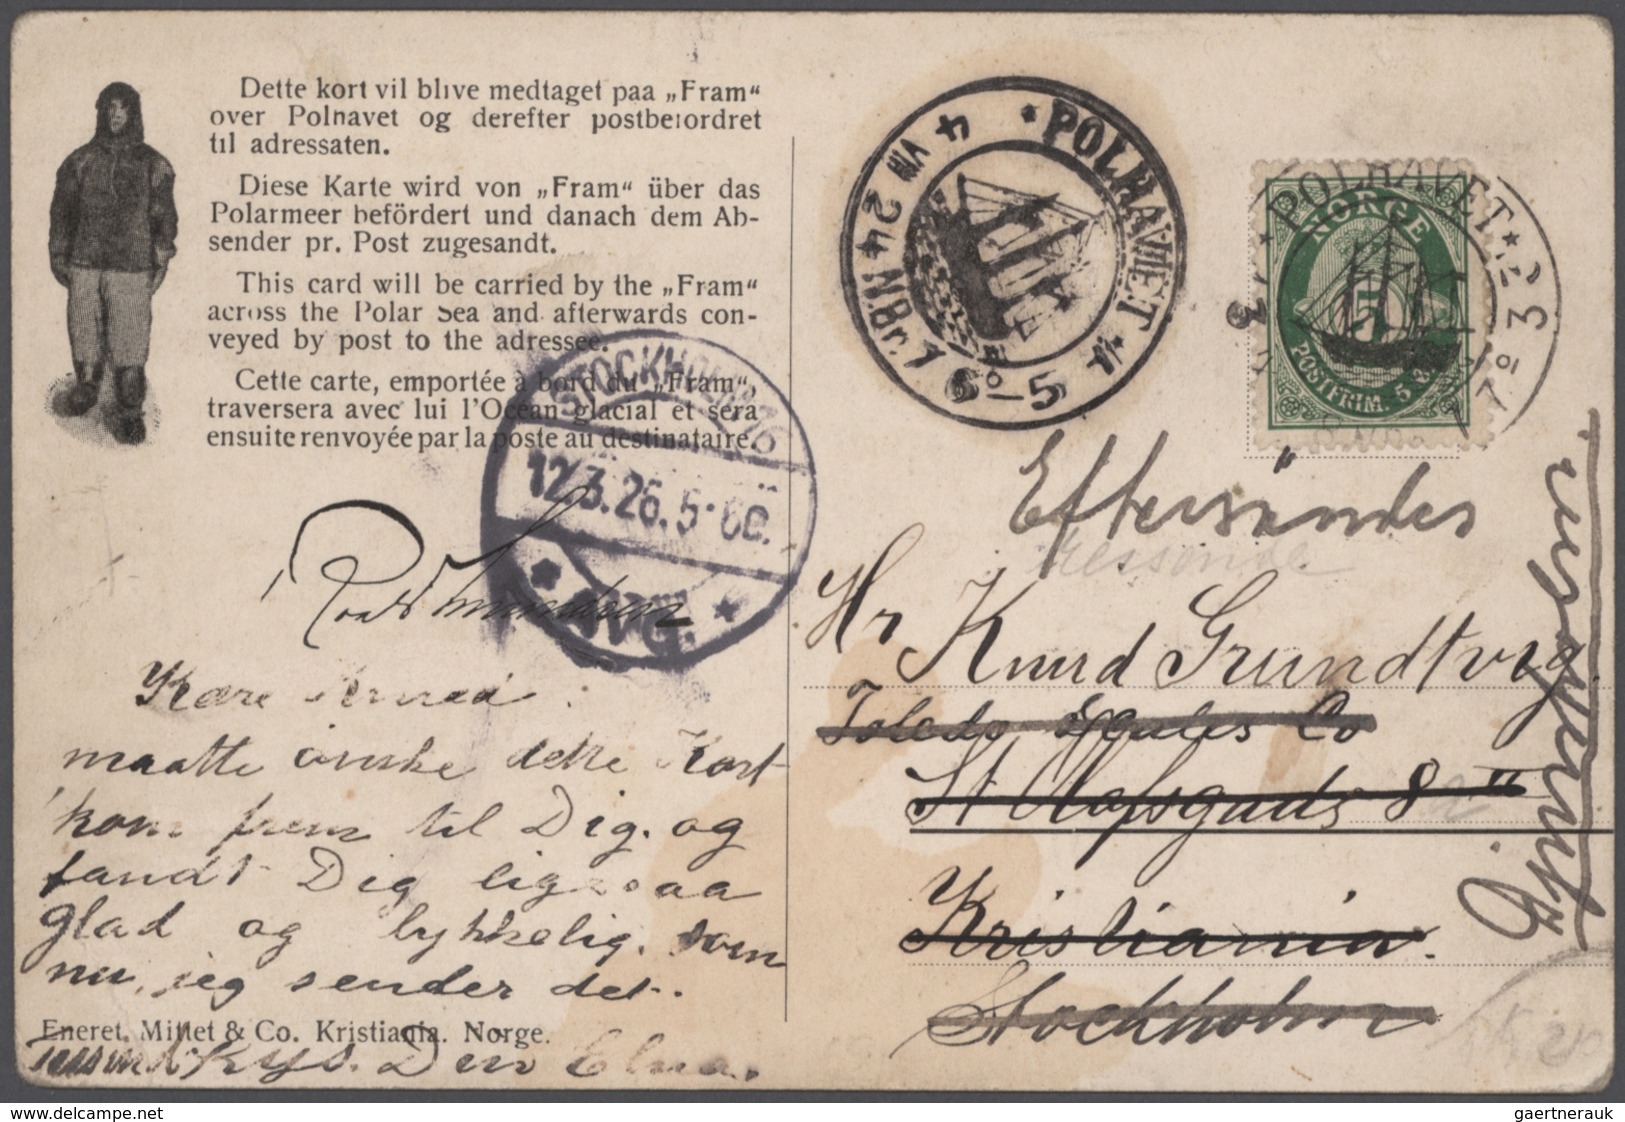 Dette kort vil blive medtaget paa „Fram“
over Polhavet og derefter postbefordret
til adressaten.
Diese Karte wird von „Fram“ über das
Polarmeer befördert und danach dem Ab-
sender pr. Post zugesandt.
This card will be carried by the „Fram“
across the Polar Sea and afterwards con-
veyed by post to the adressee.
Cette carte, emportée à bord du „Fram“,
traversera avec lui l'Océan glacial et sera
ensuite renvoyée par la poste au destinataire.
STOCKHOLM 16
12.3.26.5-60.
AVG.
Roald Amundsen
Kære Knud
maatte ønske dette Kort
kom frem til Dig. og
fandt Dig ligesaa
glad og lykkelig. som
nu, jeg sender det.
Eneret. Mittet & Co. Kristiania. Norge.
Tusind kys. Din Elna.
POLHAVET
4 VIII 24
POLHAVET
NORGE
5
POSTFRIM. 5
Eftersändes
Hr Knud Grundtvig
Toledo Scales Co
St Olafsgade 8 II
Kristiania.
Stockholm
gaertnerauk